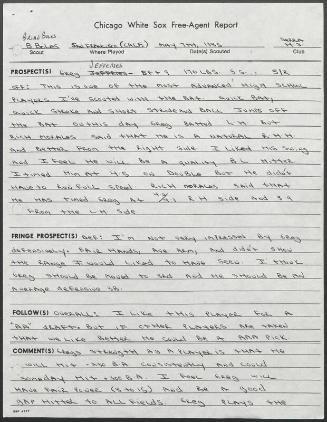 Chicago White Sox Free-Agent Report
Brian Boles
B. Boles San Francisco (Calif) May 7th, 1985 Serra H.S.
Scout Where Played Date(s) Scouted Club
Jefferies
PROSPECT(S) Greg Jefferies - 5ft9 170 lbs. S.S. 5/2
Off: This is one of the most advanced high school
players I've scouted with the bat. Quick bat,
quick stroke and short stride and ball jumps off
the bat. On this day Greg batted L.H. but
Rich Morales said that he is a natural R.H.H
and better from the right side. I liked his swing
and I feel he will be a quality B.L. hitter.
I timed him at 4.5 on double but he didn't
have to run full speed. Rich Morales said that
he has timed Greg at 4.1 R.H side and 3.9
from the L.H side
FRINGE PROSPECT(S) Def: I'm not very impressed by Greg
defensively. Fair hands, ave arm, and didn't show
the range I would liked to have seen. I think
Greg should be moved to 2nd and he should be an
average defensive 2B.
FOLLOW(S) Overall: I like this player for a
"AA" draft - but if other players are taken
that we like better he could be a AAA pick
COMMENT(S) Gregs strength as a player is that he
will hit .300 B.A consistently and could
someday hit B.A. I feel Greg will
have fair power (8 to 15) and be a good
gap hitter to all fields. Greg plays the